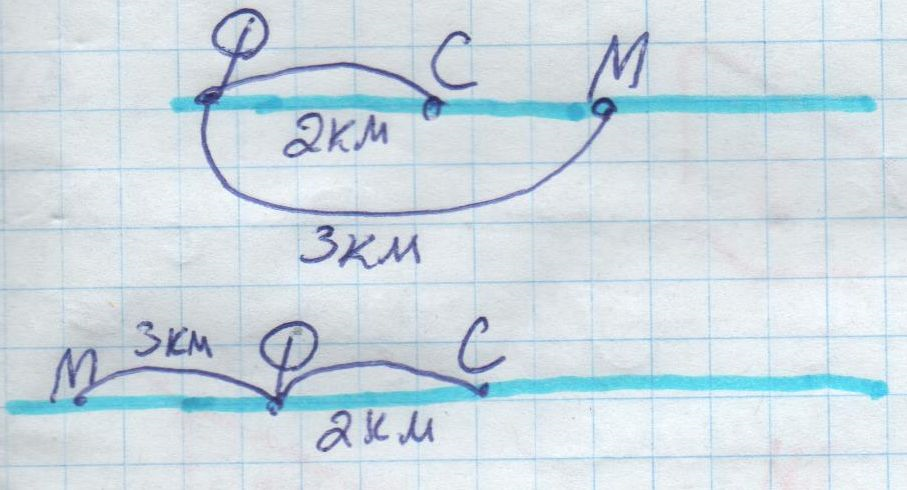 Ф С М
2км
3км
М 3км Ф С
2км